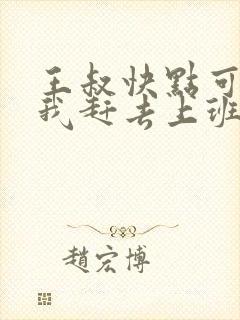 王叔快點可
我趕去上班
趙宏博